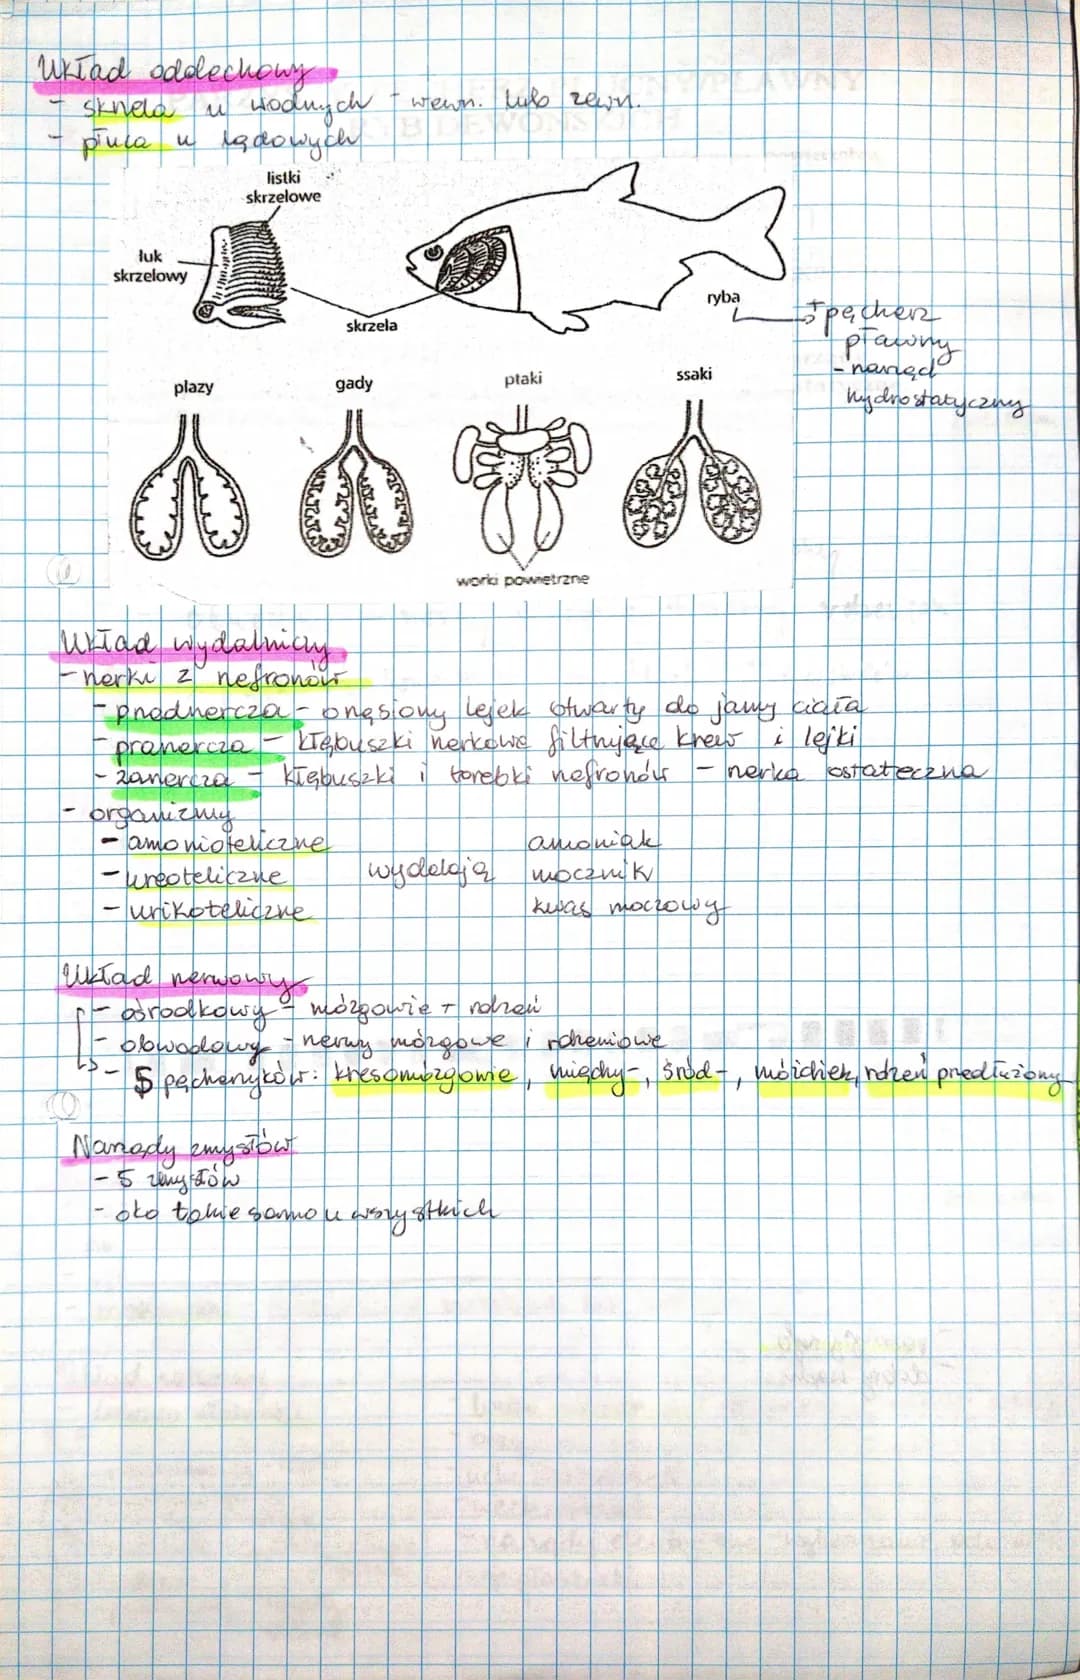 Układ oddechowy
- skrzela u wodnych - wewn. lub zewn.
- płuca u lądowych
listki
skrzelowe
łuk
skrzelowy
skrzela
ryba
+ pęcherz
pławny
- narząd
hydrostatyczny
plazy
gady
ptaki
ssaki
worki powietrzne
Układ wydalniczy
- nerki z nefronów
- przednercza - orzęsiony lejek otwarty do jamy ciała
- pranercza - kłębuszki nerkowe filtrujące krew i lejki
- zanercza - kłębuszki i torebki nefronów - nerka ostateczna
- organizmy
- amonioteliczne amoniak
- ureoteliczne wydalają mocznik
- urikoteliczne kwas moczowy
Układ nerwowy
- ośrodkowy - mózgowie + rdzeń
- obwodowy - nerwy mózgowe i rdzeniowe
- 5 pęcherzyków: kresomózgowie, między-, śród-, móżdżek, rdzeń przedłużony
Narządy zmysłów
- 5 zmysłów
- oko takie samo u wszystkich